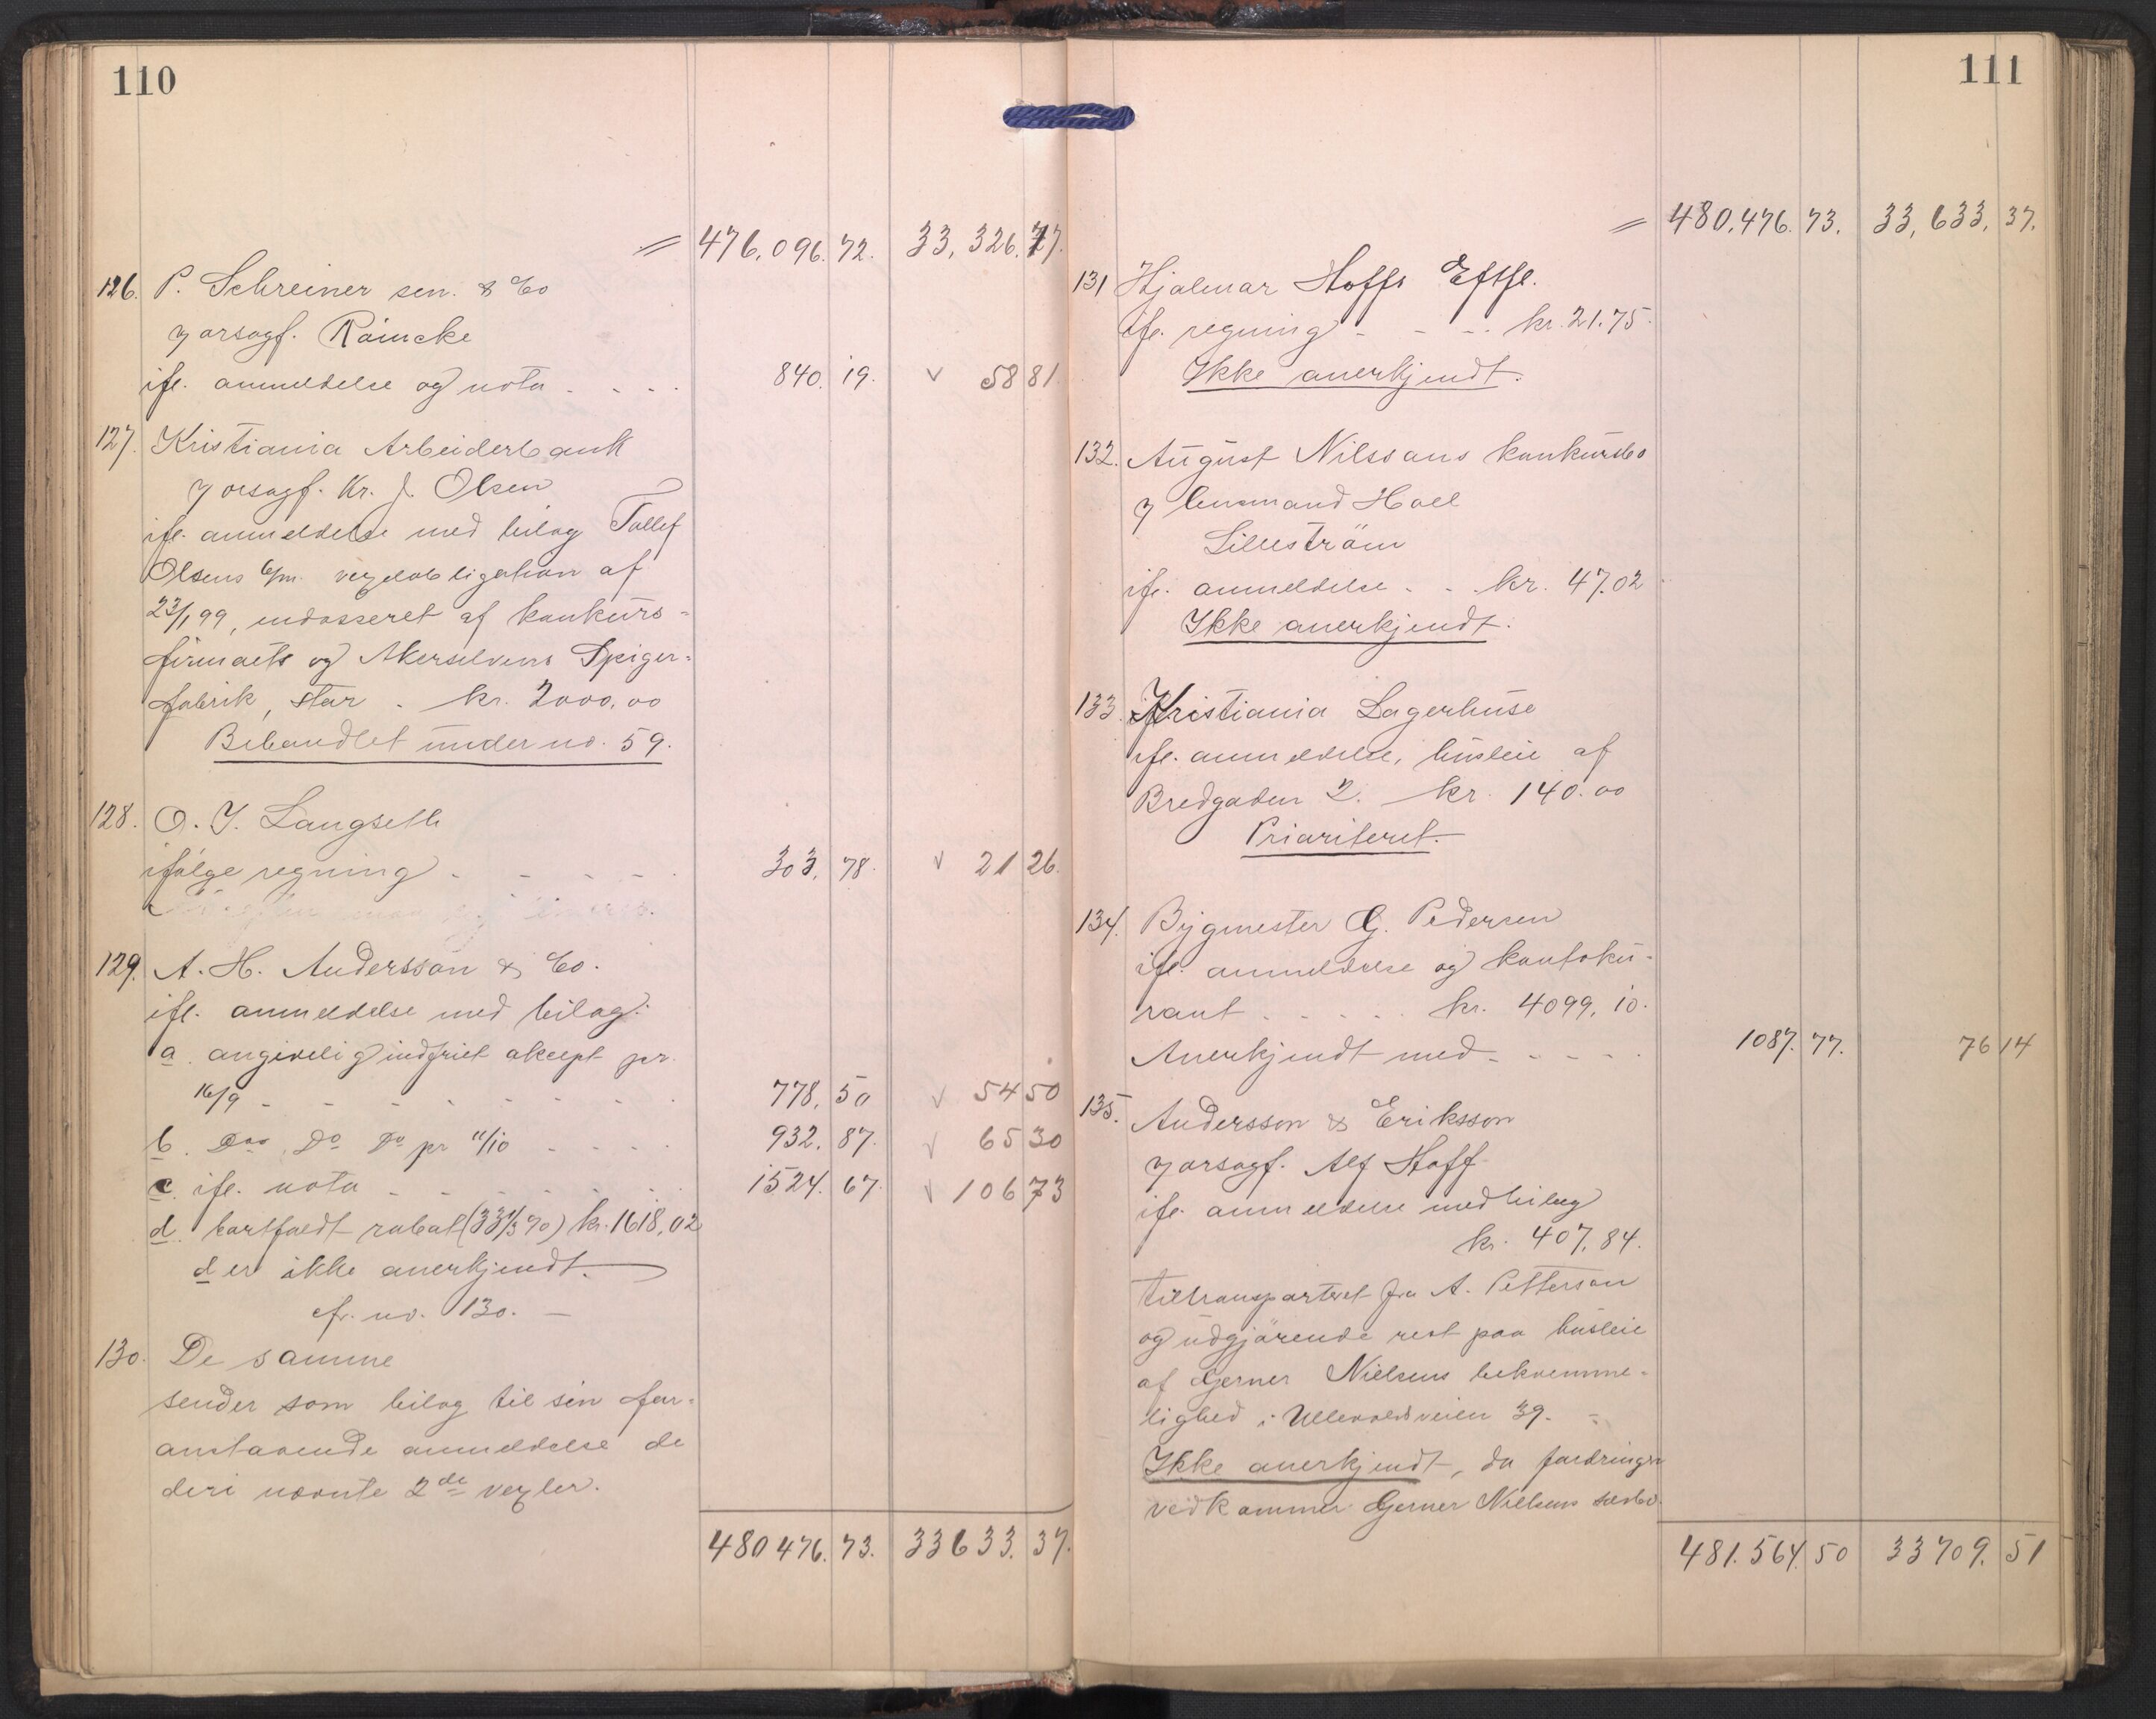 110
= 476,096.72. 33,326.77.
126. P. Schreiner sen. & Co
v/ orsagf. Råincke
ifl. anmeldelse og nota - - - - 840.19. v 58 81
127. Kristiania Arbeiderbank
v/ orsagf. Kr. J. Olsen
ifl. anmeldelse med bilag Tollef
Olsens vexelobligation af
23/1 99, endosseret af konkurs-
firmaets og Akerselvens Spiger-
fabrik, stor - kr. 2000,00
Behandlet under no. 59.
128. O. J. Langseth
ifölge regning - - - - - 303,78. v 21 26
129. A. H. Andersson & Co.
ifl. anmeldelse med bilag:
a. angivelig indfriet aksept pr.
16/9 - - - - - - - - 778,50 v 54 50
b. Do Do pr 11/10 - - - - 932,87. v 65 30
c. ifl. nota - - - - - - 1524.67. v 106 73
d. bortfaldt rabat (33 1/3 %) kr. 1618,02
d er ikke anerkjendt.
cfr. no. 130. —
130. De samme
sender som bilag til sin for-
anstaaende anmeldelse de
deri nævnte 2de vexler.
480 476.73. 33633.37.
111
= 480,476.73. 33,633,37.
131 Hjalmar Hoffs Eftfl.
ifl. regning - - - kr. 21.75
Ikke anerkjendt.
132. August Nilssons konkursbo
v/ lensmand Holl
Lilleström
ifl. anmeldelse - - kr. 47.02
Ikke anerkjendt.
133. Kristiania Lagerhuse
ifl. anmeldelse, husleie af
Bredgaden 2. kr. 140.00
Prioriteret.
134. Bygmester G. Pedersen
ifl. anmeldelse og kontoku-
rant - - - - - kr. 4099,10.
Anerkjendt med - - - - - 1087.77. 76 14
135. Andersson & Eriksson
v/ orsagf. Alf Hoff
ifl. anmeldelse med bilag
kr. 407,84.
tiltransporteret fra A. Petterson
og udgjörende rest paa husleie
af Gerner Nielsens bekvemme-
lighed i Ullevoldsveien 39. -
Ikke anerkjendt, da fordringen
vedkommer Gerner Nielsens særbo.
481.564.50 33709.51